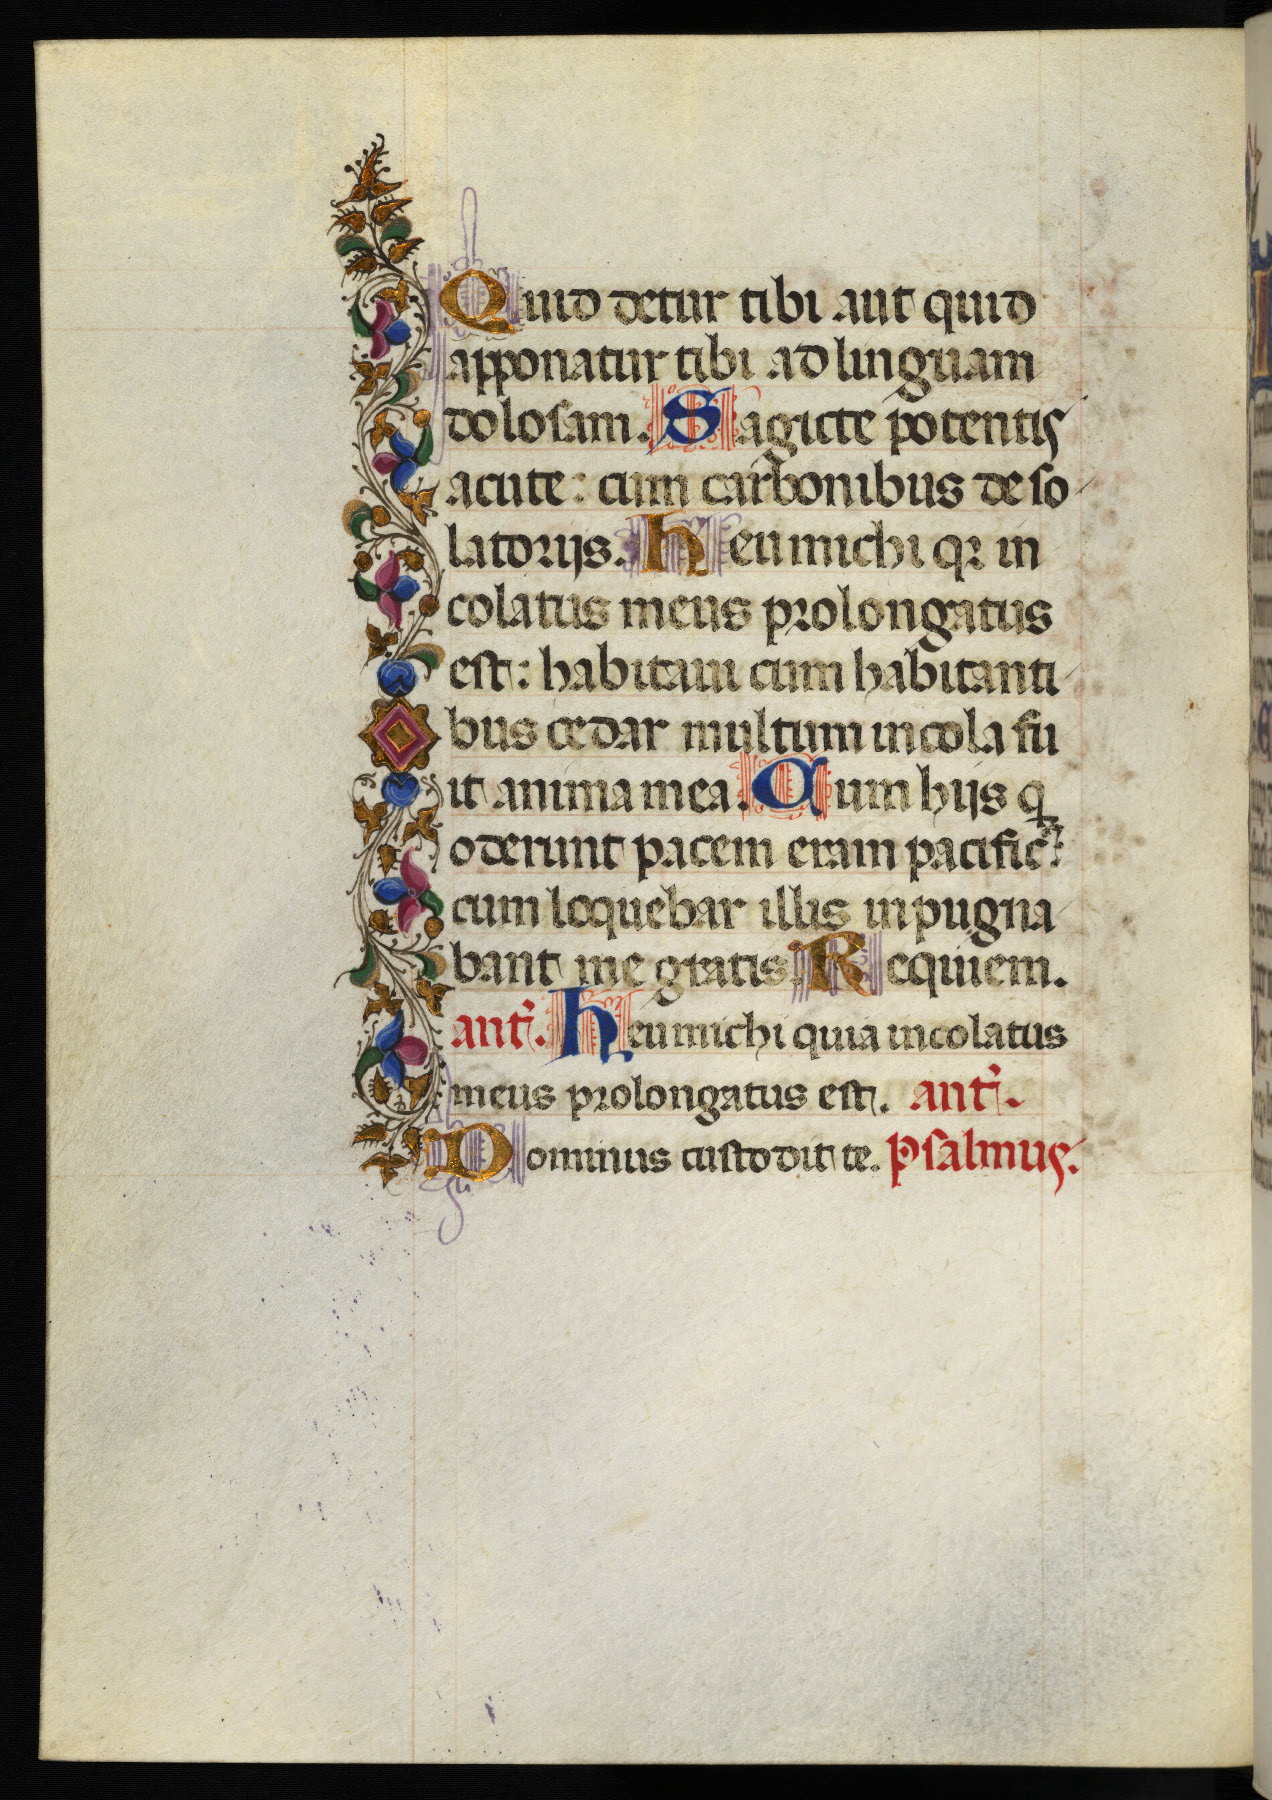 Quid detur tibi aut quid
apponatur tibi ad linguam
dolosam. Sagicte potentis
acute: cum carbonibus deso
latorijs. heu michi qꝛ in
colatus meus prolongatus
est: habitaui cum habitanti
bus cedar multum incola fu
it anima mea. Cum hijs q
oderunt pacem eram pacific⁹:
cum loquebar illis inpugna
bant me gratis. Requiem.
ant̄. heu michi quia incolatus
meus prolongatus est. ant̄.
Dominus custodit te. psalmus.